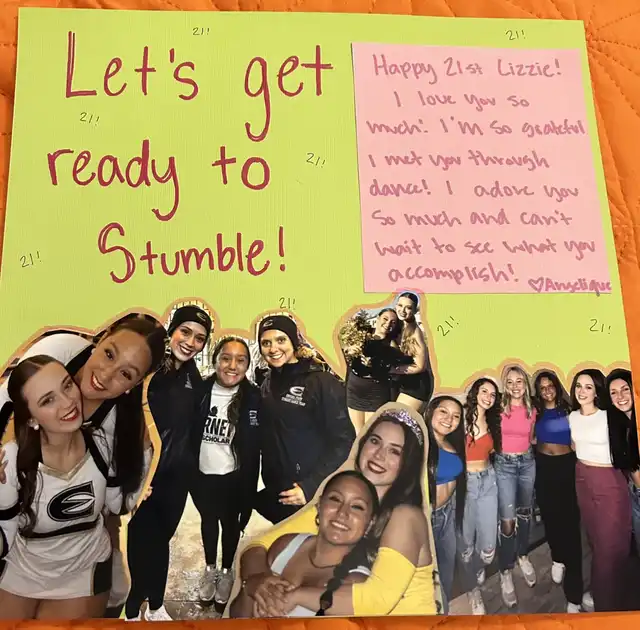 21!
21!
Let's get
21!
ready to
21!
Stumble!
21!
21!
21!
21!
Happy 21st Lizzie!
I love you so
much! I'm so grateful
I met you through
dance! I adore you
so much and can't
wait to see what you
accomplish! ♡Angelique
E